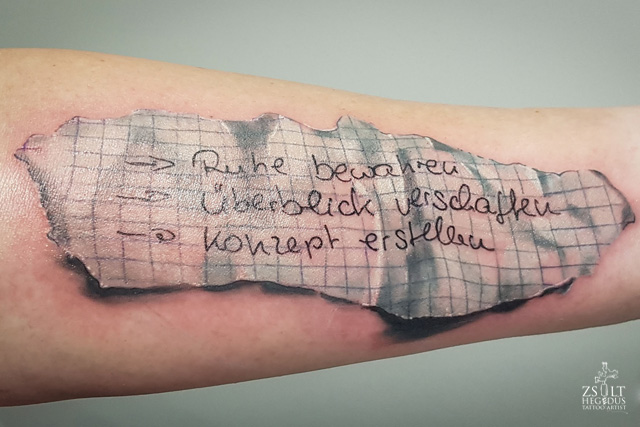 → Ruhe bewahren
→ Überblick verschaffen
→ Konzept erstellen
ZSOLT
HEGEDUS
TATTOO ARTIST